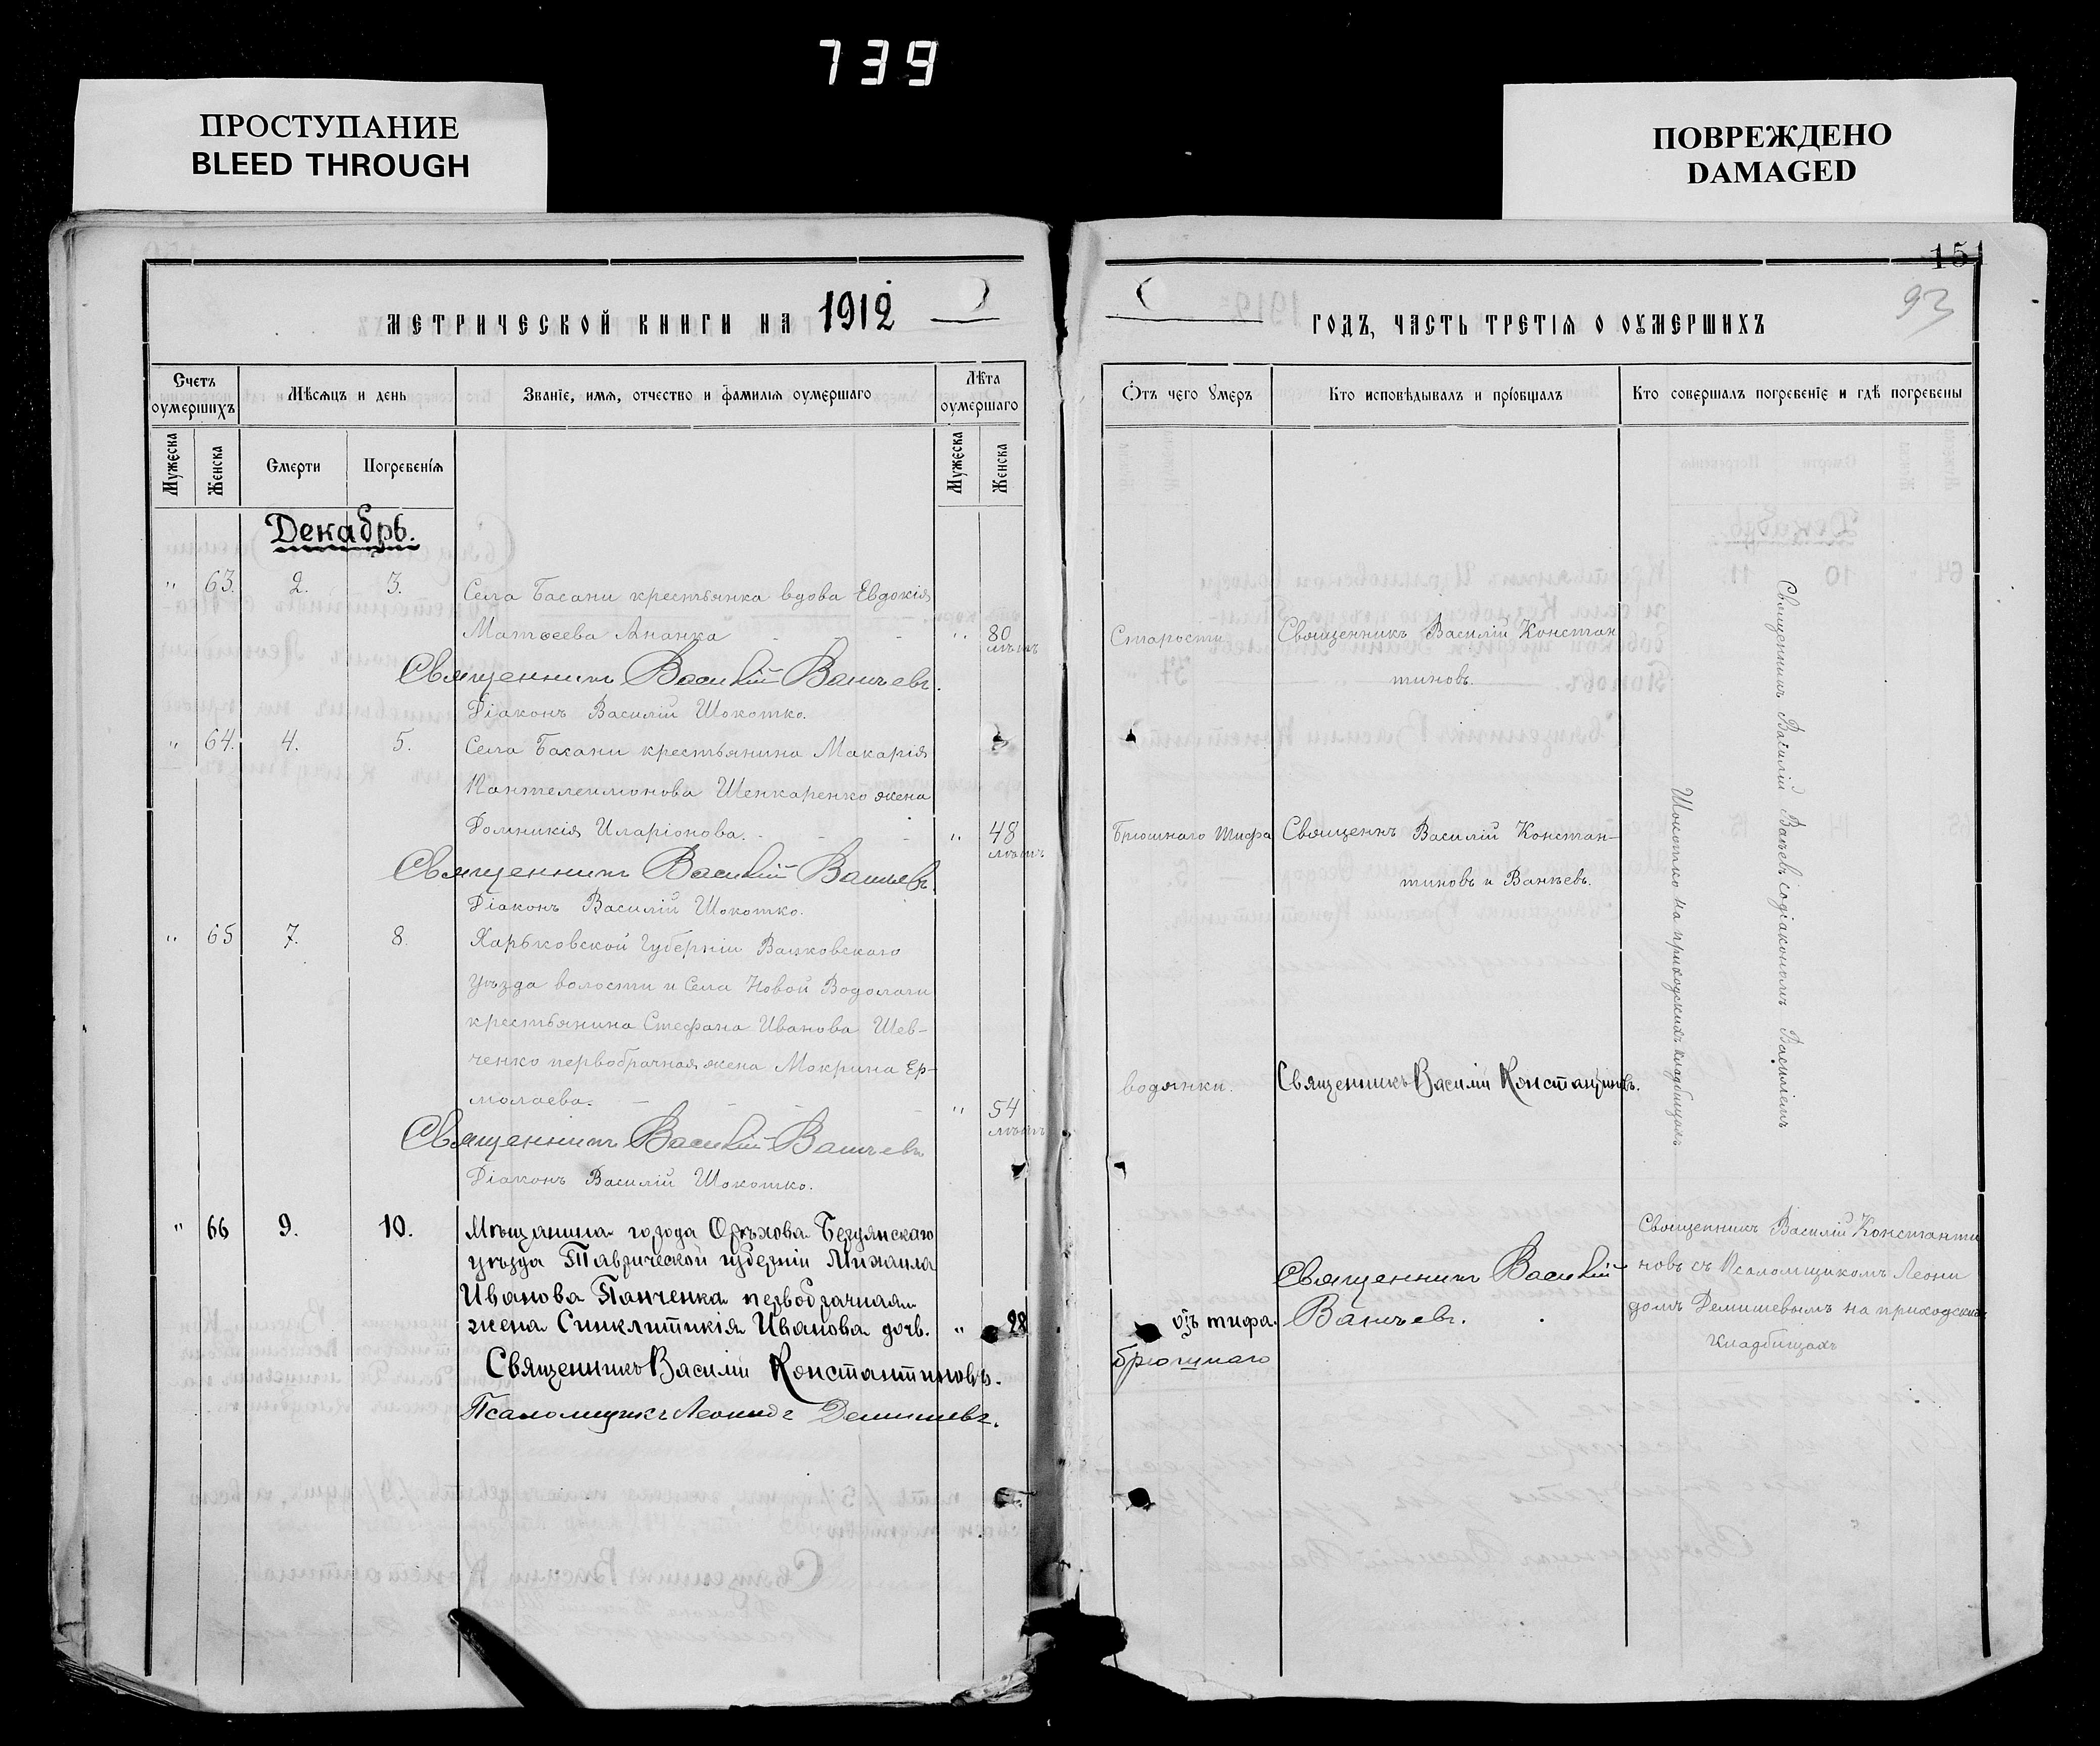 739
ПРОСТУПАНИЕ
BLEED THROUGH
ПОВРЕЖДЕНО
DAMAGED
МЕТРИЧЕСКОЙ КНИГИ НА 1912
Счетъ оумершихъ
Мѣсяцъ и день
Званіе, имя, отчество и фамилія оумершаго
Лѣта оумершаго
Мужеска
Женска
Смерти
Погребенія
Мужеска
Женска
Декабрь.
" 63. 2. 3. Села Басани крестьянка вдова Евдокія
Матѳеева Ананка " 80
лѣтъ
Священникъ Василій Ванчевъ.
Діаконъ Василій Шокотко.
" 64. 4. 5. Села Басани крестьянина Макарія
Пантелеимонова Шенкаренко жена
Домникія Иларіонова. " 48
лѣтъ
Священникъ Василій Ванчевъ.
Діаконъ Василій Шокотко.
" 65 7. 8. Харьковской Губерніи Валковскаго
уѣзда волости и Села Новой Водолаги
крестьянина Стефана Иванова Шев-
ченко первобрачная жена Мокрина Ер-
молаева. " 54
лѣтъ
Священникъ Василій Ванчевъ
Діаконъ Василій Шокотко.
" 66 9. 10. Мѣщанина города Орѣхова Бердянскаго
уѣзда Таврической губерніи Михаила
Иванова Панченка первобрачная
жена Синклитикія Иванова дочь. " 28
Священникъ Василій Константиновъ.
Псаломщикъ Леонидъ Демишевъ.
151
93
ГОДЪ, ЧАСТЬ ТРЕТІЯ О ОУМЕРШИХЪ
Отъ чего умеръ
Кто исповѣдывалъ и пріобщалъ
Кто совершалъ погребеніе и гдѣ погребены
Старости
Священникъ Василій Констан
тиновъ.
Брюшнаго тифа
Священнъ Василій Констан-
тиновъ и Ванчевъ.
водянки.
Священникъ Василій Константиновъ.
Священникъ Василій Ванчевъ съ діакономъ Василіемъ
Шокотко на приходскихъ кладбищахъ
тифа.
брюшнаго
Священникъ Василій
Ванчевъ.
Священникъ Василій Константи
новъ съ Псаломщикомъ Леони
домъ Демишевымъ на приходскихъ
кладбищахъ